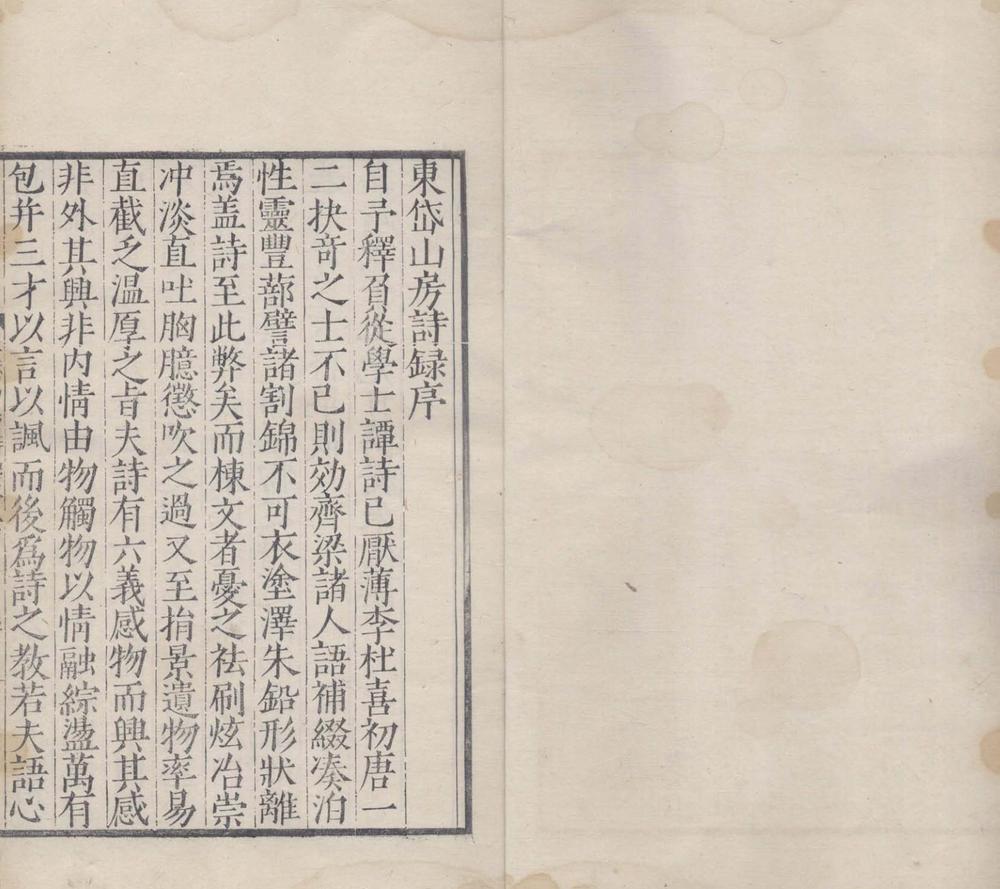 東岱山房詩録序
自予釋負從學士譚詩已厭薄李杜喜初唐一
二抉奇之士不已則効齊梁諸人語補綴凑泊
性靈豐蔀譬諸割錦不可衣塗澤朱鉛形狀離
焉盖詩至此弊矣而棟文者憂之祛刷炫冶崇
冲淡直吐胸臆懲吹之過又至捐景遺物率易
直截乏温厚之旨夫詩有六義感物而興其感
非外其興非内情由物觸物以情融綜盪萬有
包幷三才以言以諷而後爲詩之教若夫語心